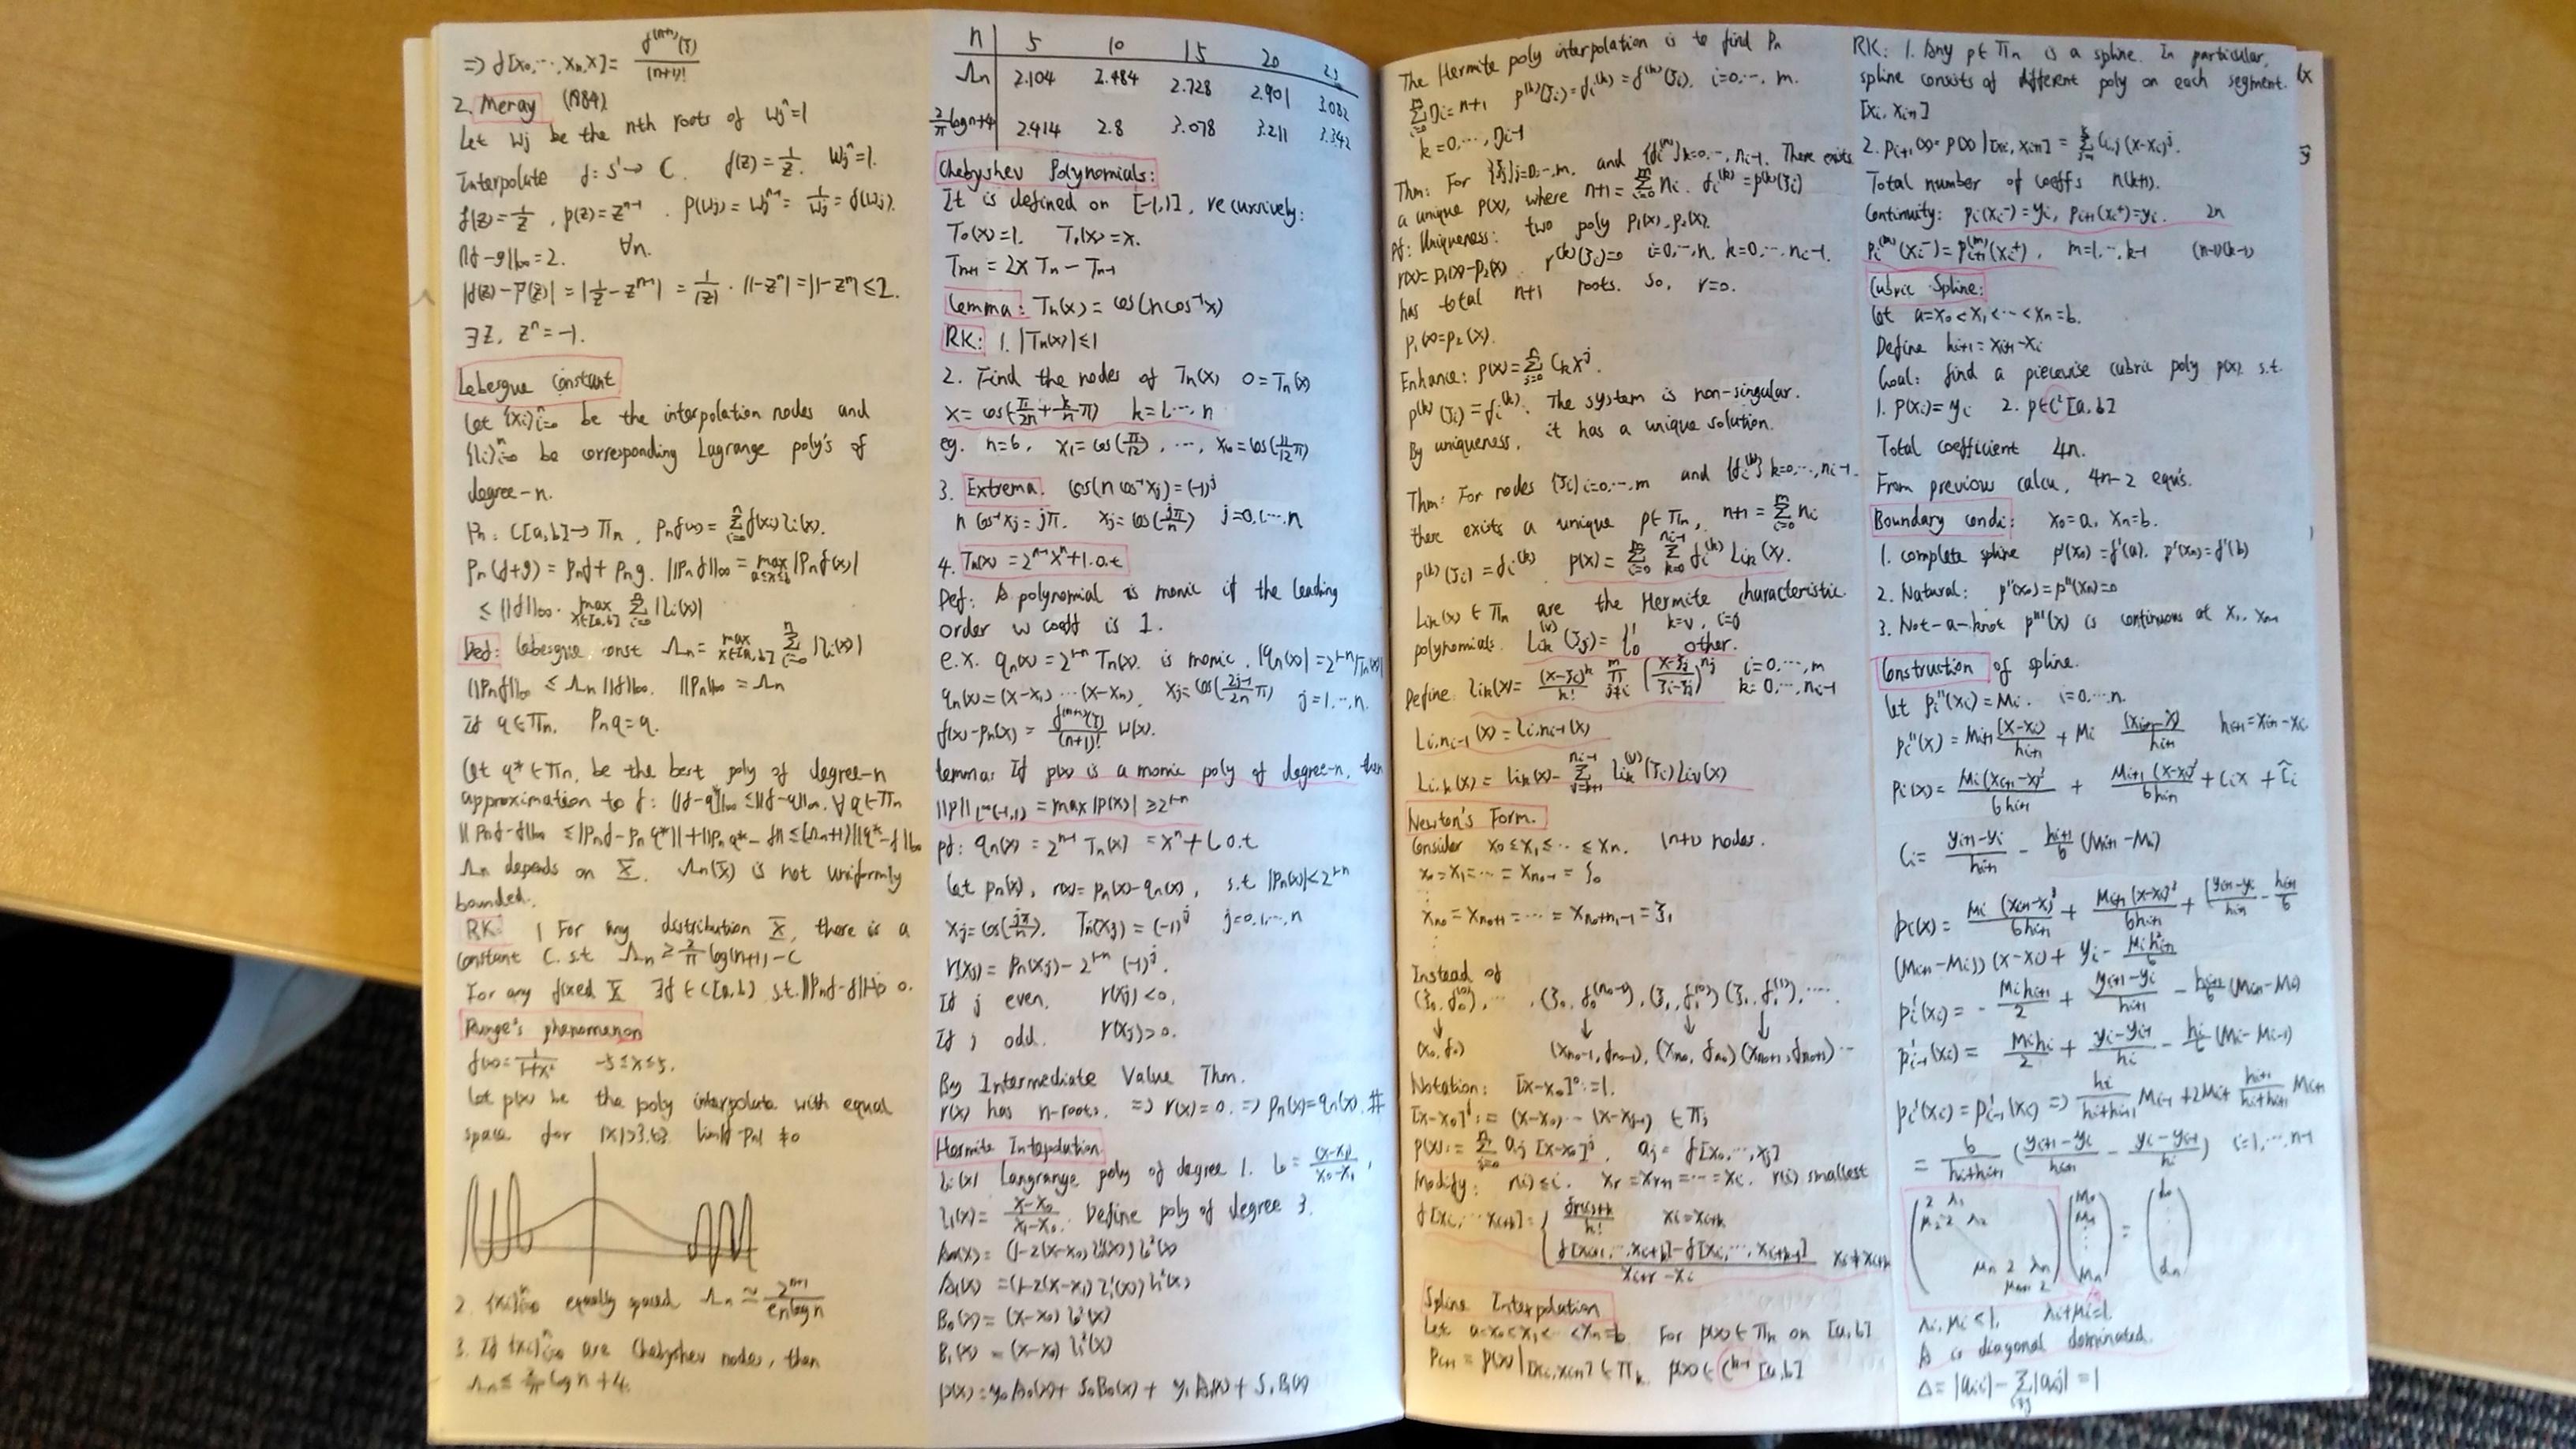 => f[x0,⋯,xn,x] = f^(n+1)(ξ) / (n+1)!
2. Meray (1884)
Let Wj be the nth roots of Wj^n=1
Interpolate f: S'→ C. f(z) = 1/z. Wj^n=1.
f(z)=1/z, p(z)=z^(n-1). p(Wj)=Wj^(n-1)=1/Wj=f(Wj).
||f-g||∞=2. ∀n.
|f(z)-p(z)| = |1/z - z^(n-1)| = 1/|z| · |1-z^n| = |1-z^n| ≤2.
∃z, z^n=-1.
Lebesgue Constant
Let {xi}i=0^n be the interpolation nodes and
{li}i=0^n be corresponding Lagrange poly's of
degree-n.
Pn: C[a,b]→Πn, Pnf(x)= Σi=0^n f(xi)li(x).
Pn(f+g)= Pnf+Png. ||Pnf||∞ = max a≤x≤b |Pnf(x)|
≤ ||f||∞ · max x∈[a,b] Σi=0^n |li(x)|
Def: Lebesgue const Λn = max x∈[a,b] Σi=0^n |li(x)|
||Pnf||∞ ≤ Λn ||f||∞. ||Pn||∞ = Λn
If q∈Πn, Pnq=q.
Let q*∈Πn, be the best poly of degree-n
approximation to f: ||f-q*||∞ ≤||f-q||∞. ∀q∈Πn
||Pnf-f||∞ ≤||Pnf-Pnq*||+||Pnq*-f||≤(Λn+1)||q*-f||∞
Λn depends on X. Λn(X) is not uniformly
bounded.
RK: 1 For any distribution X, there is a
constant C. s.t Λn ≥ 2/π log(n+1)-C
For any fixed X ∃f∈C[a,b) s.t. ||Pnf-f||↛ 0.
Runge's phenomenon
f(x)=1/(1+x²) -5≤x≤5.
Let p(x) be the poly interpolate with equal
space for |x|>3.63. lim|f-pn| ≠0
2. {xi}i=0^n equally spaced Λn ≃ 2^(n+1) / (e n log n)
3. If {xi}i=0^n are Chebyshev nodes, then
Λn ≤ 2/π log n + 4.
n 5 10 15 20 25
Λn 2.104 2.484 2.728 2.901 3.082
2/π log n+4 2.414 2.8 3.078 3.211 3.342
Chebyshev Polynomials:
It is defined on [-1,1], recursively:
T0(x)=1. T1(x)=x.
Tn+1 = 2x Tn - Tn-1
Lemma: Tn(x) = cos(n cos⁻¹x)
RK: 1. |Tn(x)|≤1
2. Find the nodes of Tn(x) 0=Tn(x)
x= cos(π/2n + k/n π) k=1,⋯,n
eg. n=6, x1=cos(π/12), ⋯, x6=cos(11/12 π)
3. Extrema. cos(n cos⁻¹xj)=(-1)^j
n cos⁻¹xj = jπ. xj= cos(jπ/n) j=0,1,⋯,n
4. Tn(x)=2^(n-1)x^n+l.o.t
Def: A polynomial is monic if the leading
order w coeff is 1.
e.x. qn(x)=2^(1-n)Tn(x). is monic. |qn(x)|=2^(1-n)|Tn(x)|
qn(x)=(x-x1)⋯(x-xn). xj=cos(2j-1/2n π) j=1,⋯,n.
f(x)-pn(x) = f^(n+1)(ξ)/(n+1)! W(x).
Lemma: If p(x) is a monic poly of degree-n, then
||p||L^∞(-1,1) = max|p(x)| ≥2^(1-n)
pf: qn(x) = 2^(n-1) Tn(x) = x^n+l.o.t
Let pn(x), r(x)= pn(x)-qn(x), s.t |pn(x)|<2^(1-n)
xj=cos(jπ/n). Tn(xj)=(-1)^j j=0,1,⋯,n
r(xj)= pn(xj)-2^(1-n)(-1)^j.
If j even. r(xj)<0.
If j odd. r(xj)>0.
By Intermediate Value Thm.
r(x) has n-roots. => r(x)=0. => pn(x)=qn(x). #
Hermite Interpolation.
li(x) Langrange poly of degree 1. l0 = (x-x1)/(x0-x1),
l1(x)= (x-x0)/(x1-x0). Define poly of degree 3.
A0(x)= (1-2(x-x0)l0'(x)) l0²(x)
A1(x) =(1-2(x-x1)l1'(x)) l1²(x)
B0(x)= (x-x0) l0²(x)
B1(x) = (x-x0) l1²(x)
p(x)=y0A0(x)+S0B0(x)+ y1A1(x)+S1B1(x)
The Hermite poly interpolation is to find Pn
Σi=0^m ni = n+1 p^(k)(ξi)=fi^(k)=f^(k)(ξi). i=0,⋯,m.
k=0,⋯,ni-1
Thm: For {ξj}j=0,⋯,m. and {fi^(k)}k=0,⋯,ni-1. There exists
a unique p(x), where n+1= Σi=0^m ni. fi^(k)=p^(k)(ξi)
Pf: Uniqueness: two poly p1(x), p2(x).
r(x)=p1(x)-p2(x). r^(k)(ξi)=0 i=0,⋯,n. k=0,⋯,ni-1.
has total n+1 roots. So, r=0.
p1(x)=p2(x).
Enhance: p(x)= Σj=0^n Ck x^j.
p^(k)(ξi)=fi^(k). The system is non-singular.
By uniqueness, it has a unique solution.
Thm: For nodes {ξi}i=0,⋯,m and {fi^(k)}k=0,⋯,ni-1.
there exists a unique p∈Πn, n+1= Σi=0^m ni
p^(k)(ξi)=fi^(k). p(x)= Σi=0^m Σk=0^(ni-1) fi^(k) Lik(x).
Lik(x)∈Πn are the Hermite characteristic
polynomials. Lik^(v)(ξj)= {1 k=v, i=j
0 other.
Define lik(x)= (x-ξi)^k/k! Π j≠i ^m ((x-ξj)/(ξi-ξj))^nj i=0,⋯,m
k=0,⋯,ni-1
Li,ni-1(x)=li,ni-1(x)
Li,k(x)= lik(x)- Σv=k+1^(ni-1) lik^(v)(ξi)Liv(x)
Newton's Form.
Consider x0≤x1≤⋯≤xn. (n+1) nodes.
x0=x1=⋯=xn0-1=ξ0
⋮
xn0=xn0+1=⋯=xn0+n1-1=ξ1
⋮
Instead of
(ξ0,f0^(0)),⋯, (ξ0,f0^(n0-1)),(ξ1,f1^(0))(ξ1,f1^(1)),⋯.
↓ ↓ ↓ ↓
(x0,f0) (xn0-1,fn0-1),(xn0,fn0)(xn0+1,fn0+1)⋯
Notation: [x-x0]^0:=1.
[x-x0]^j:= (x-x0)⋯(x-xj-1) ∈Πj
p(x)= Σj=0^n aj [x-x0]^j, aj=f[x0,⋯,xj]
Modify: r(i)≤i. xr=xr+1=⋯=xi. r(i) smallest
f[xi,⋯xi+k]= { fr(i)+k/k! xi=xi+k
(f[xi+1,⋯,xi+k]-f[xi,⋯,xi+k-1])/(xi+k-xi) xi≠xi+k
Spline Interpolation
Let a=x0<x1<⋯<xn=b. For p(x)∈Πk on [a,b]
Pi+1=p(x)|[xi,xi+1]∈Πk. p(x)∈C^(k-1)[a,b]
RK: 1. Any p∈Πn is a spline. In particular,
spline consists of different poly on each segment.
[xi,xi+1]
2. pi+1(x)=p(x)|[xi,xi+1] = Σ Ci,j(x-xi)^j.
Total number of coeffs n(k+1).
Continuity: pi(xi⁻)=yi, pi+1(xi⁺)=yi. 2n
pi^(m)(xi⁻)=pi+1^(m)(xi⁺). m=1,⋯,k-1 (n-1)(k-1)
Cubric Spline:
Let a=x0<x1<⋯<xn=b.
Define hi+1=xi+1-xi
Goal: find a piecewise cubric poly p(x) s.t.
1. p(xi)=yi 2. p∈C²[a,b]
Total coefficient 4n.
From previous calcu, 4n-2 equ's.
Boundary condi: x0=a, xn=b.
1. complete spline p'(x0)=f'(a). p'(xn)=f'(b)
2. Natural: p''(x0)=p''(xn)=0
3. Not-a-knot p'''(x) is continuous at x1, xn-1
Construction of spline.
Let pi''(xi)=Mi. i=0,⋯,n.
pi''(x)=Mi+1 (x-xi)/hi+1 + Mi (xi+1-x)/hi+1 hi+1=xi+1-xi
pi(x)= Mi(xi+1-x)³/6hi+1 + Mi+1(x-xi)³/6hi+1 + Cix + C̃i
Ci= (yi+1-yi)/hi+1 - hi+1/6 (Mi+1-Mi)
pi(x)= Mi(xi+1-x)³/6hi+1 + Mi+1(x-xi)³/6hi+1 + [(yi+1-yi)/hi+1 - hi+1/6
(Mi+1-Mi)](x-xi)+yi- Mihi+1²/6
pi'(xi)= - Mihi+1/2 + (yi+1-yi)/hi+1 - hi+1/6 (Mi+1-Mi)
pi-1'(xi)= Mihi/2 + (yi-yi-1)/hi - hi/6 (Mi-Mi-1)
pi'(xi)=pi-1'(xi) => hi/(hi+hi+1) Mi-1+2Mi+ hi+1/(hi+hi+1) Mi+1
= 6/(hi+hi+1) ((yi+1-yi)/hi+1 - (yi-yi-1)/hi) i=1,⋯,n-1
(2 λ1
μ2 2 λ2
μn 2 λn
μn+1 2) (M0 M1 ⋮ Mn) = (d0 ⋮ dn)
λi,μi<1, λi+μi=1.
A is diagonal dominated.
Δ=|aii|-Σi≠j|aij|=1